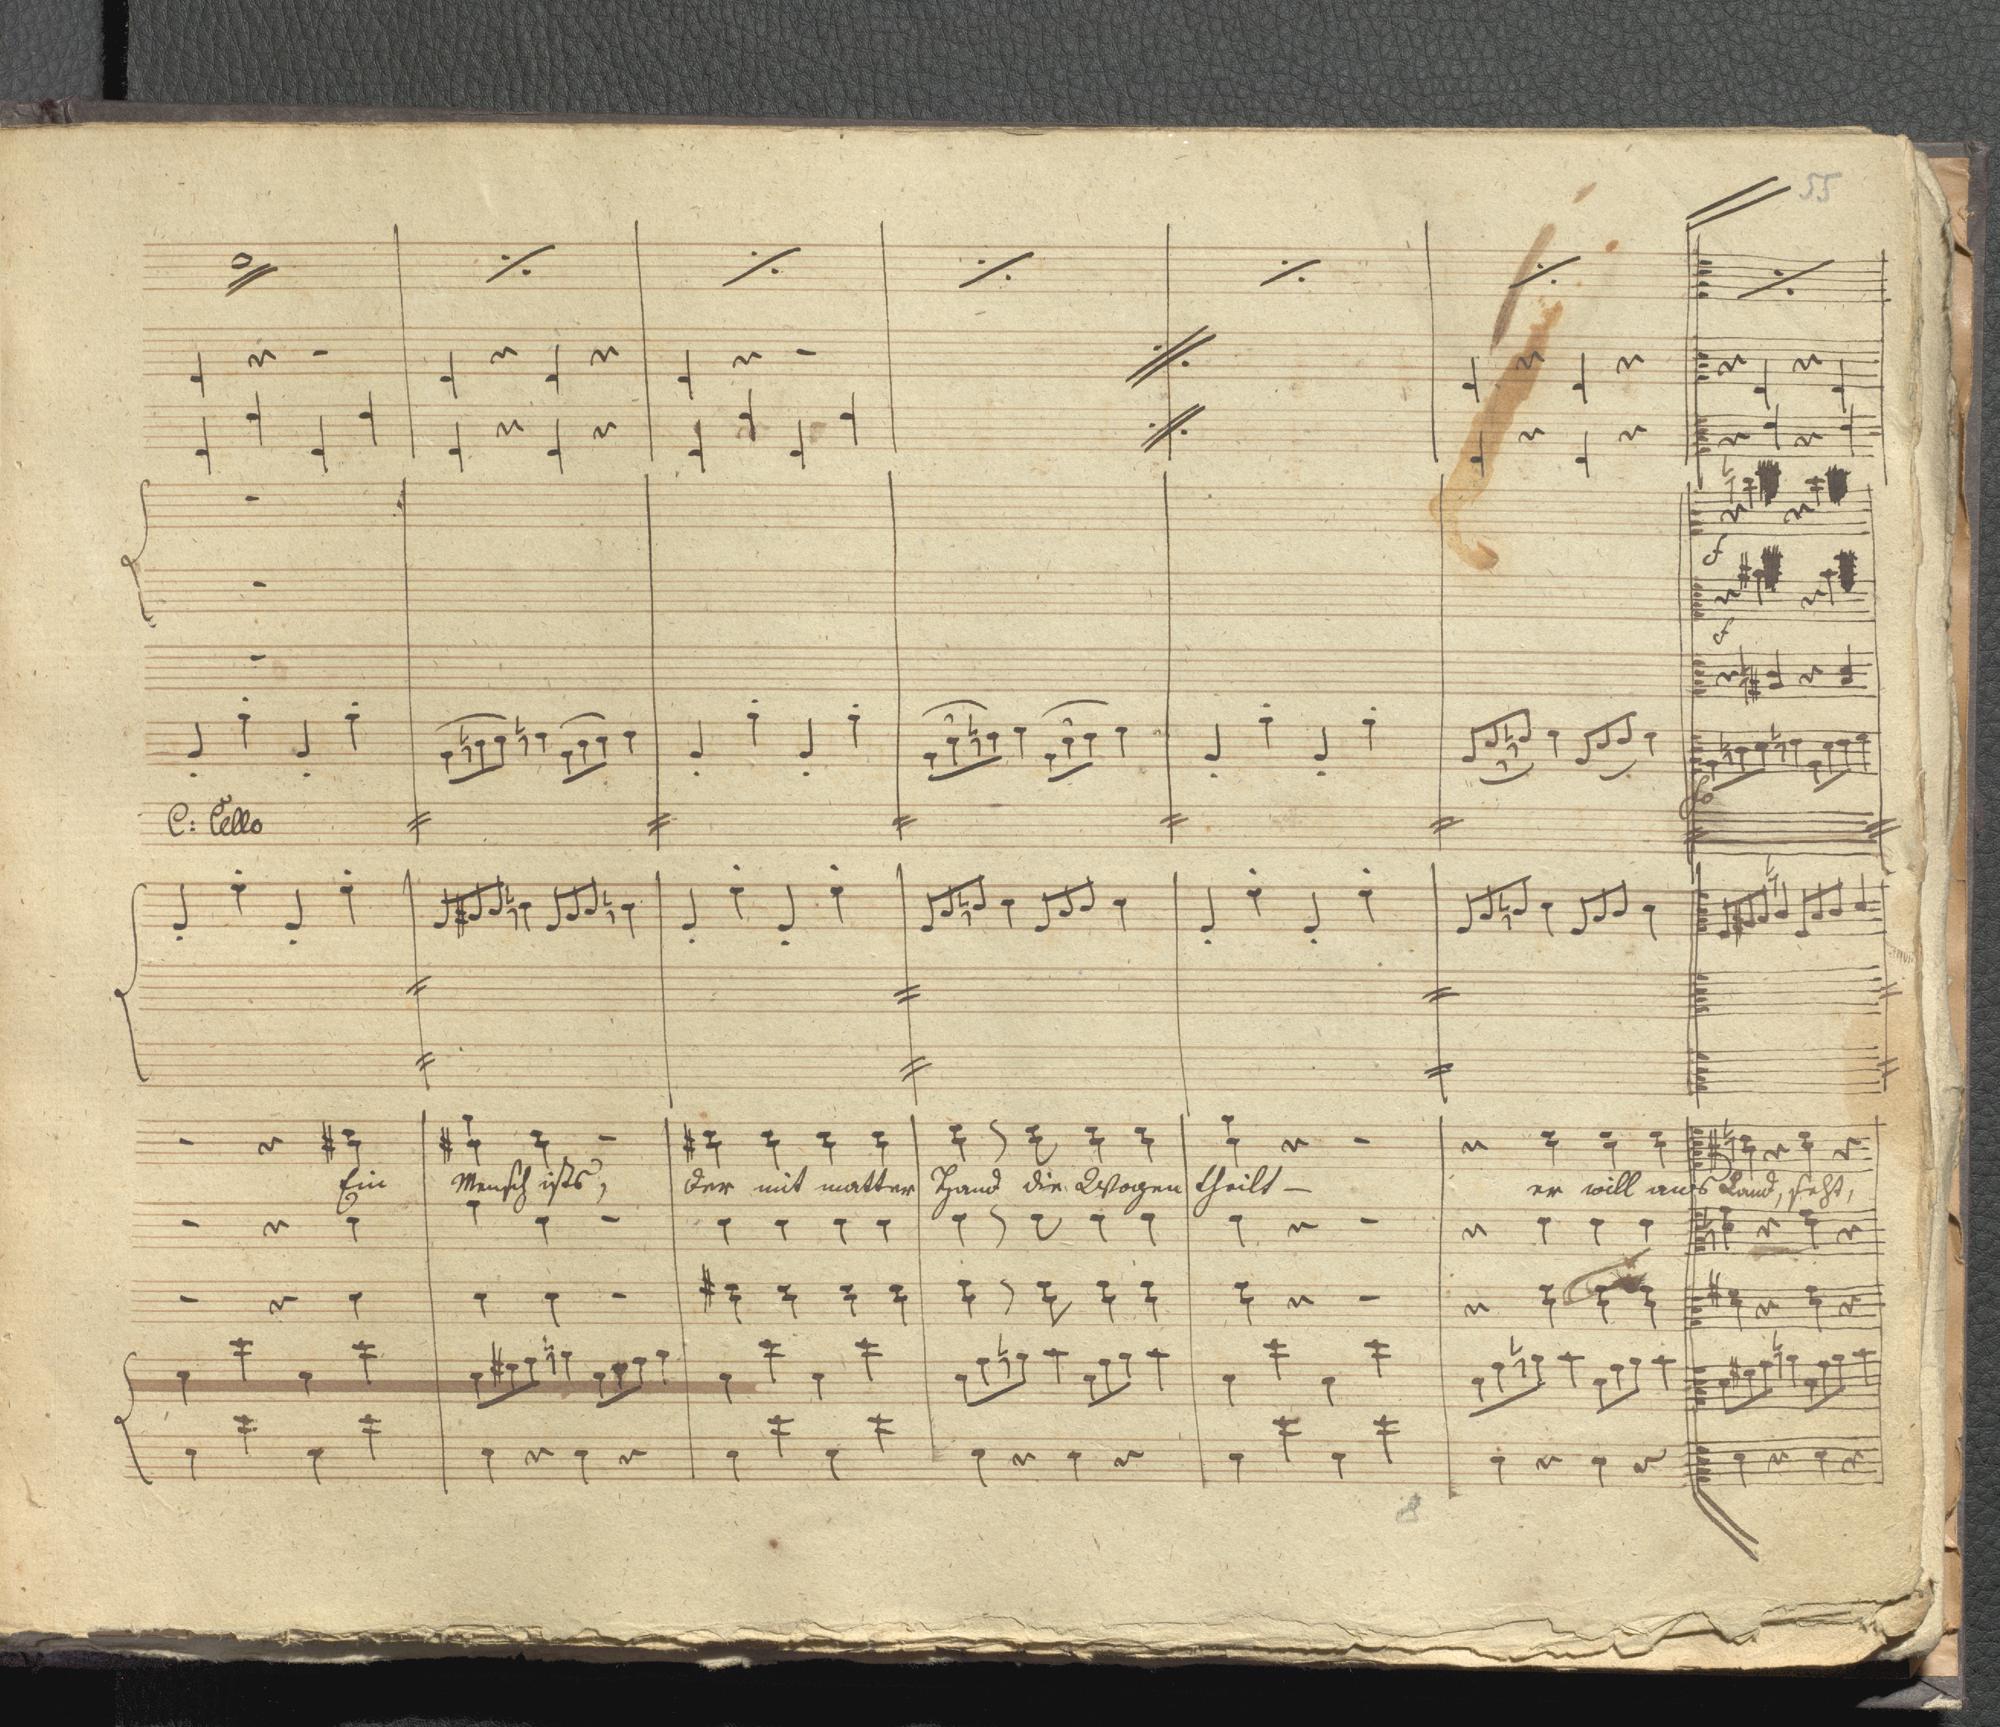 55
f
f
C: Cello
Ein Mensch ists, der mit matter Hand die Wogen theilt – er will ans Land, seht,
8